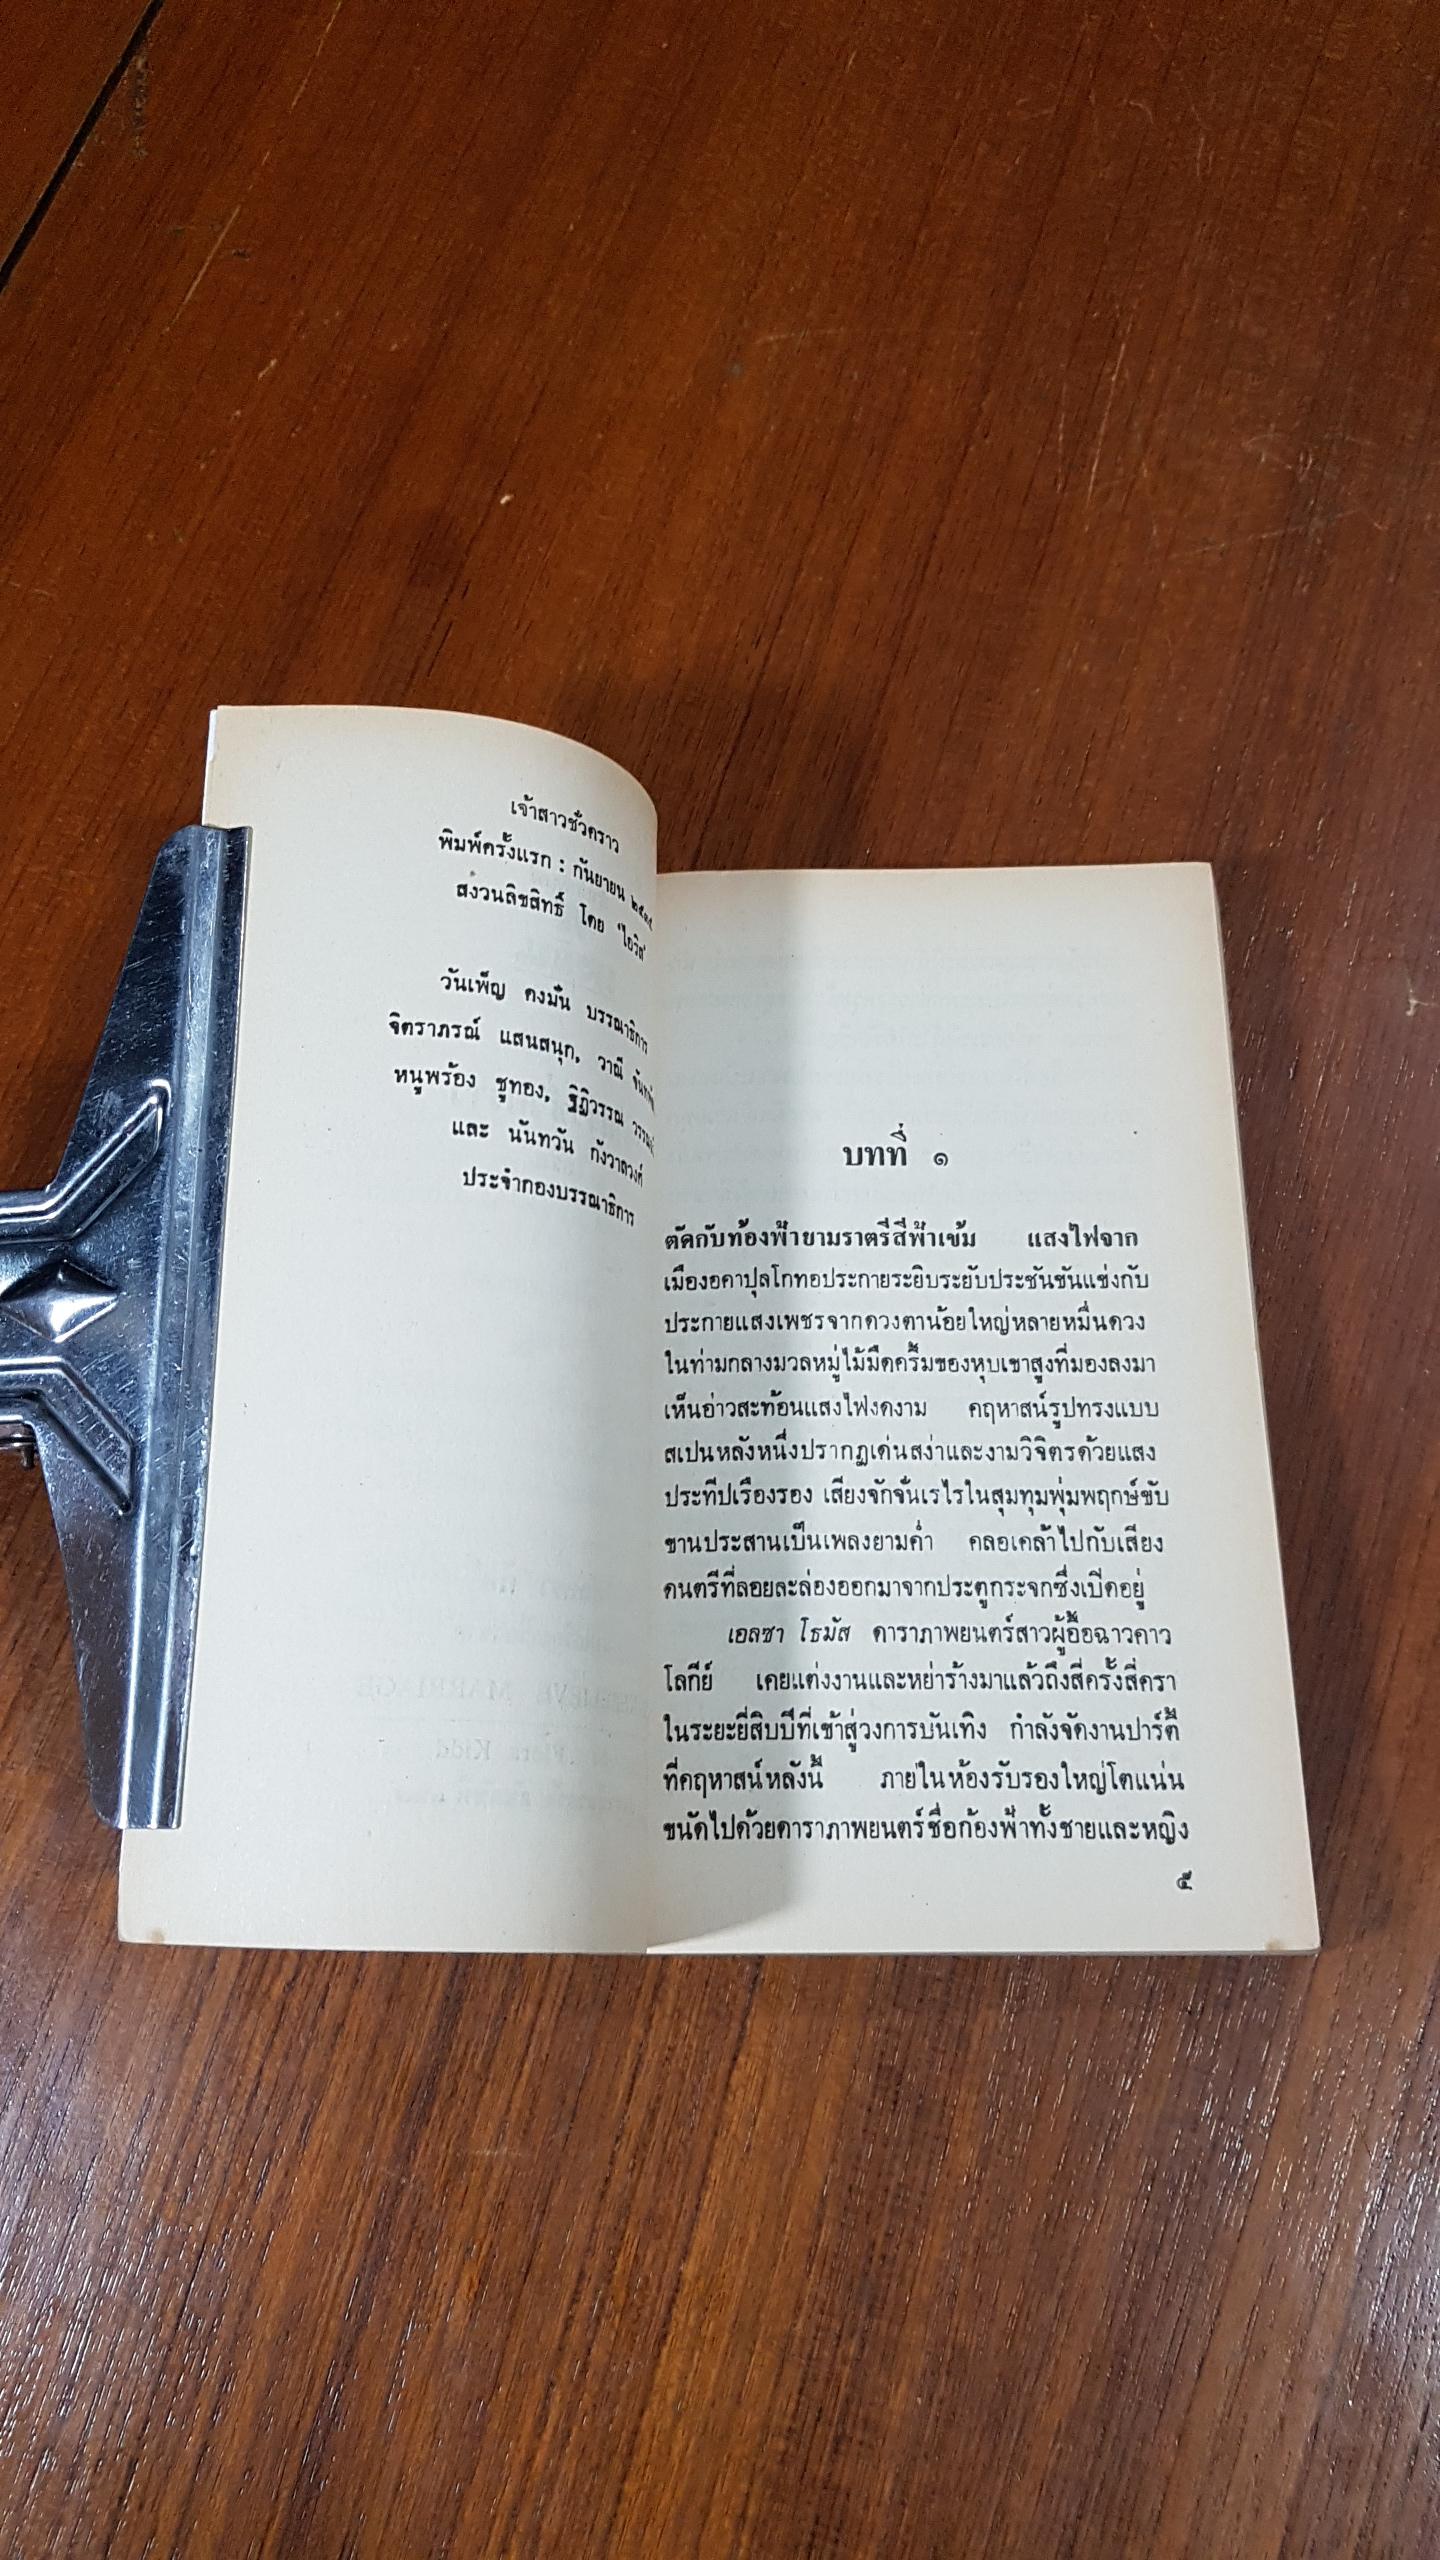 เจ้าสาวชั่วคราว
พิมพ์ครั้งแรก : กันยายน ๒๕๓๕
สงวนลิขสิทธิ์ โดย 'ไอวิส'
วันเพ็ญ คงมั่น บรรณาธิการ
จิตราภรณ์ แสนสนุก, วาณี
หนูพร้อง ชูทอง, ฐิฏิวรรณ
และ นันทวัน กังวาลวงศ์
ประจำกองบรรณาธิการ
บทที่ ๑
ตัดกับท้องฟ้ายามราตรีสีฟ้าเข้ม แสงไฟจาก
เมืองอคาปุลโกทอประกายระยิบระยับประชันขันแข่งกับ
ประกายแสงเพชรจากดวงตาน้อยใหญ่หลายหมื่นดวง
ในท่ามกลางมวลหมู่ไม้มืดครึ้มของหุบเขาสูงที่มองลงมา
เห็นอ่าวสะท้อนแสงไฟงดงาม คฤหาสน์รูปทรงแบบ
สเปนหลังหนึ่งปรากฏเด่นสง่าและงามวิจิตรด้วยแสง
ประทีปเรืองรอง เสียงจักจั่นเรไรในสุมทุมพุ่มพฤกษ์ขับ
ขานประสานเป็นเพลงยามค่ำ คลอเคล้าไปกับเสียง
ดนตรีที่ลอยละล่องออกมาจากประตูกระจกซึ่งเปิดอยู่
เอลซา โธมัส ดาราภาพยนตร์สาวผู้อื้อฉาวคาว
โลกีย์ เคยแต่งงานและหย่าร้างมาแล้วถึงสี่ครั้งสี่ครา
ในระยะยี่สิบปีที่เข้าสู่วงการบันเทิง กำลังจัดงานปาร์ตี้
ที่คฤหาสน์หลังนี้ ภายในห้องรับรองใหญ่โตแน่น
ขนัดไปด้วยดาราภาพยนตร์ชื่อก้องฟ้าทั้งชายและหญิง
๕